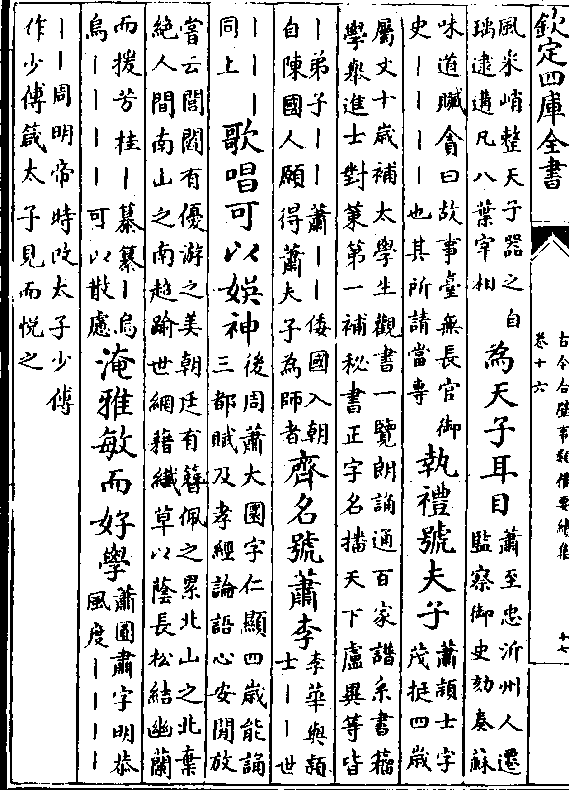 欽定四庫全書
古今合璧事類備要續集
卷十六
十七
風采峭整天子器之自
瑀逮遘凡八葉宰相
為天子耳目
蕭至忠沂州人遷
監察御史劾奏蘇
味道贓會曰故事臺無長官御
史||||也其所請當專
執禮號夫子
蕭頴士字
茂挺四歲
屬文十歲補太學生觀書一覽朗誦通百家譜系書籀
學舉進士對策第一補秘書正字名播天下盧異等皆
|弟子|||蕭||倭國入朝
自陳國人願得蕭夫子為師者
齊名號蕭李
李華與頴
士||世
||||
同上
歌唱可以娛神
後周蕭大圜字仁顯四歲能誦
三都賦及孝經論語心安閒放
嘗云閭閻有優游之美朝廷有簪佩之累北山之北棄
絶人間南山之南超踰世網藉纎草以蔭長松結幽蘭
而援芳桂|纂纂|烏
烏||||可以散慮
淹雅敏而好學
蕭圓肅字明恭
風度||||
||周明帝時改太子少傅
作少傅箴太子見而悅之